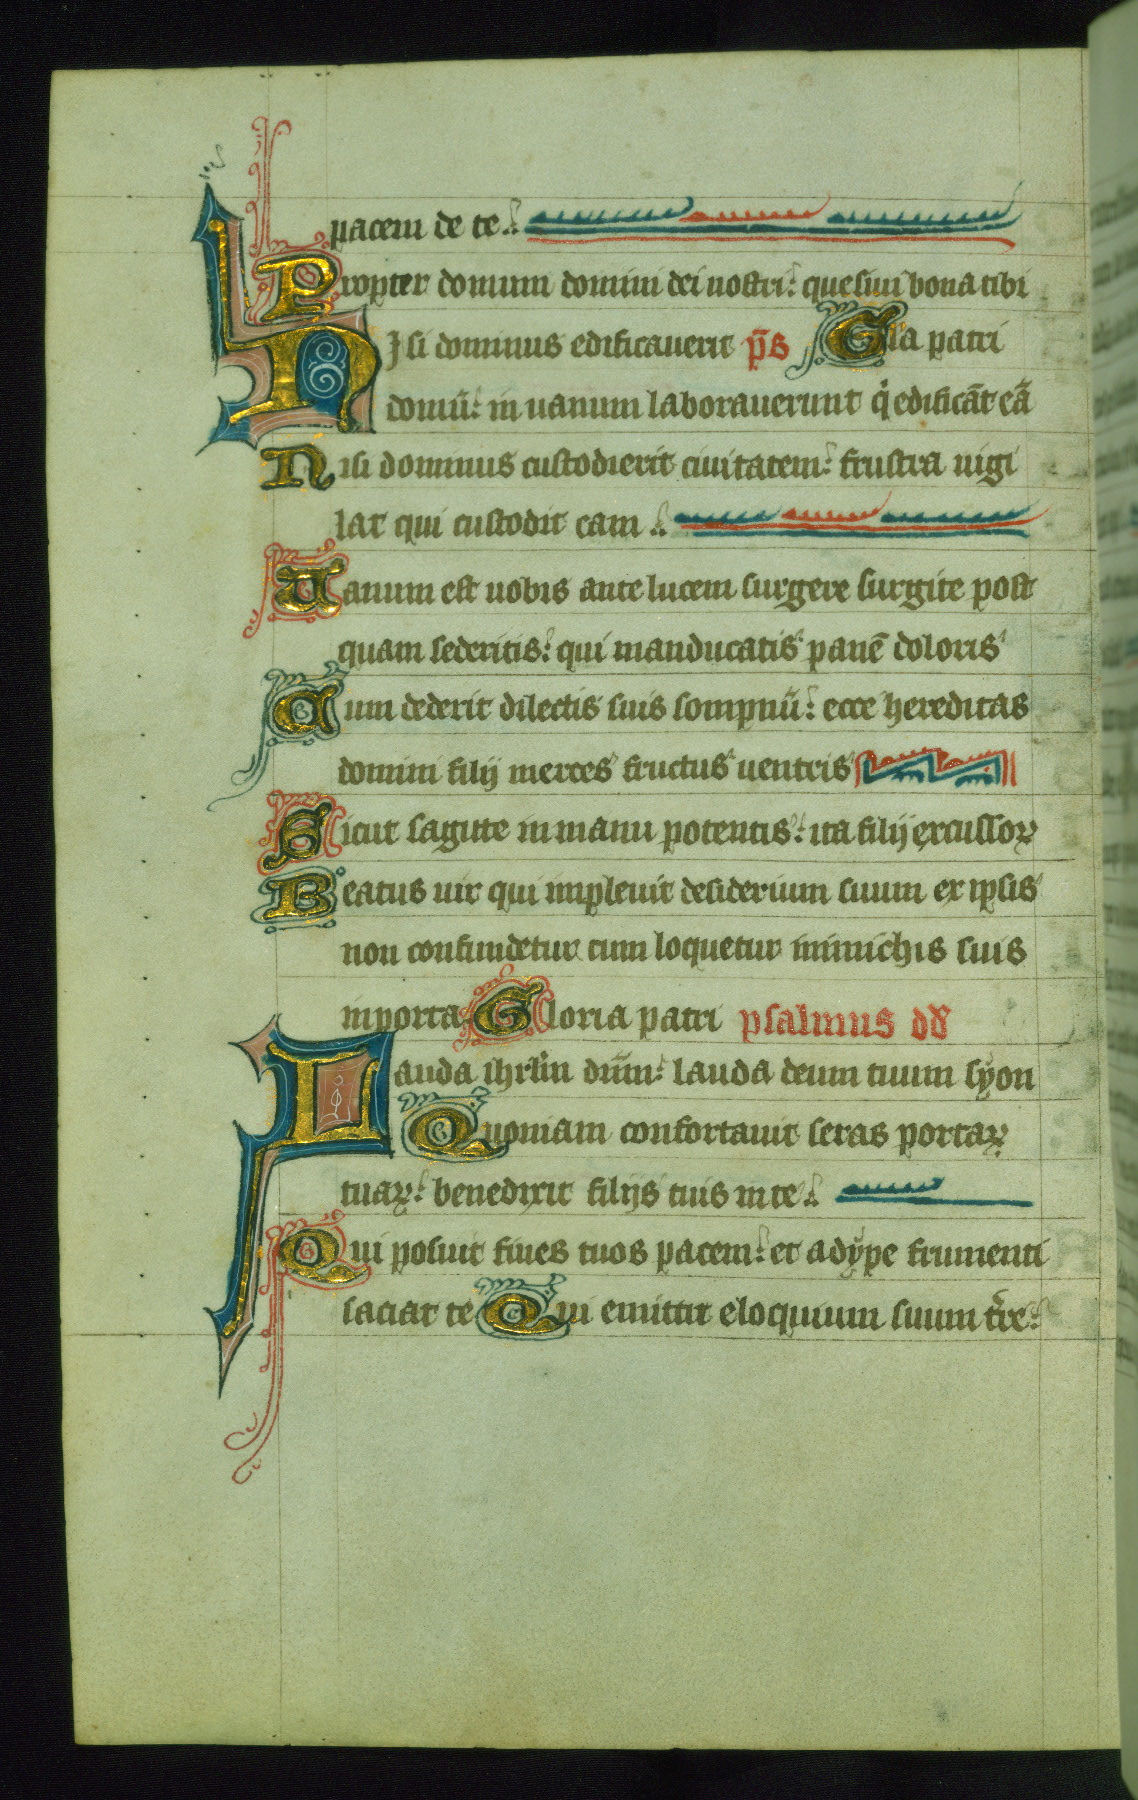 pacem de te.
Propter domum domini dei nostri: quesivi bona tibi
Nisi dominus edificaverit p̄s Gl'a patri
domū: in vanum laboraverunt q̇ edificāt eā
Nisi dominus custodierit civitatem: frustra vigi
lat qui custodit eam.
Vanum est vobis ante lucem surgere surgite post
quam sederitis: qui manducatis panē doloris
Cum dederit dilectis suis sompnū: ecce hereditas
domini filij merces fructus ventris
Sicut sagitte in manu potentis: ita filij excussoꝝ
Beatus vir qui implevit desiderium suum ex ipsis
non confundetur cum loquetur inimichis suis
in porta. Gloria patri psalmus dd
Lauda ihrl'm dn̄m: lauda deum tuum syon
Quoniam confortavit seras portaꝝ
tuaꝝ: benedixit filijs tuis in te.
Qui posuit fines tuos pacem: et adype frumenti
saciat te Qui emittit eloquium suum tr̄e: